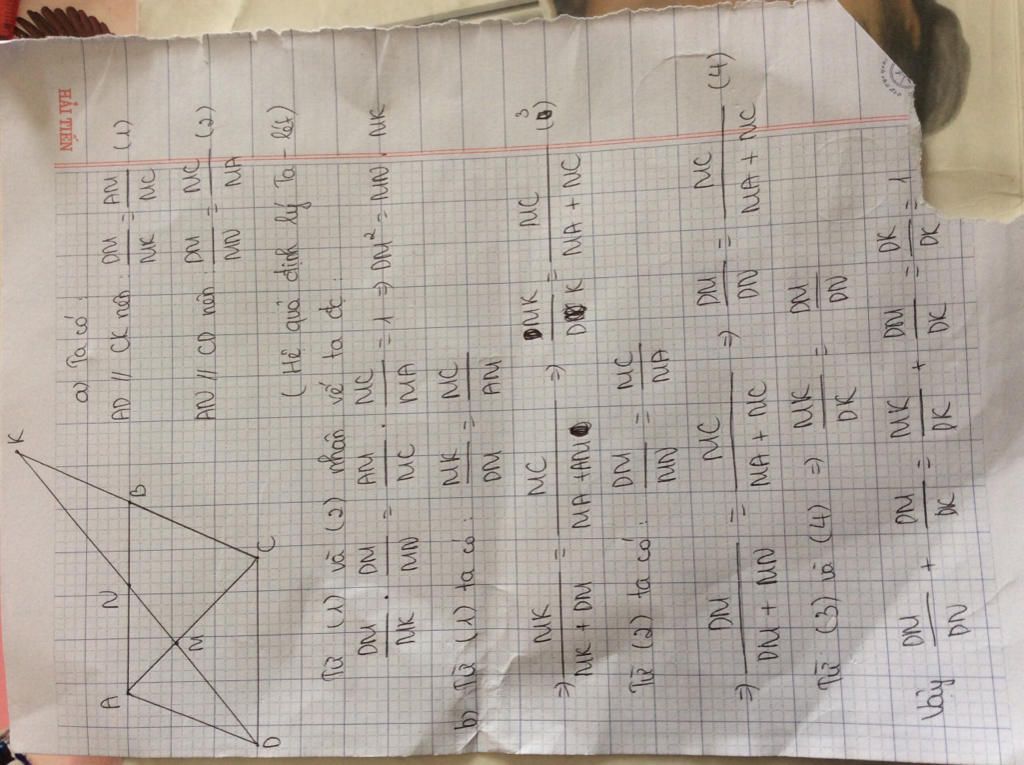 HẢI TIẾN
K
A N B
M
D C
a) Ta có:
AD // CK nên: DM/MK = AM/MC (1)
AN // CD nên: DM/MN = MC/MA (2)
(Hệ quả định lý Ta-lét)
Từ (1) và (2) nhân vế ta đc:
DM/MK . DM/MN = AM/MC . MC/MA = 1 => DM² = MN . MK
b) Từ (1) ta có: MK/DM = MC/AM
=> MK/MK + DM = MC/MA + AM => MK/DK = MC/MA + MC (3)
Từ (2) ta có: DM/MN = MC/MA
=> DM/DM + MN = MC/MA + MC => DM/DN = MC/MA + MC (4)
Từ (3) và (4) => MK/DK = DM/DN
Vậy DM/DN + DM/DK = MK/DK + DM/DK = DK/DK = 1